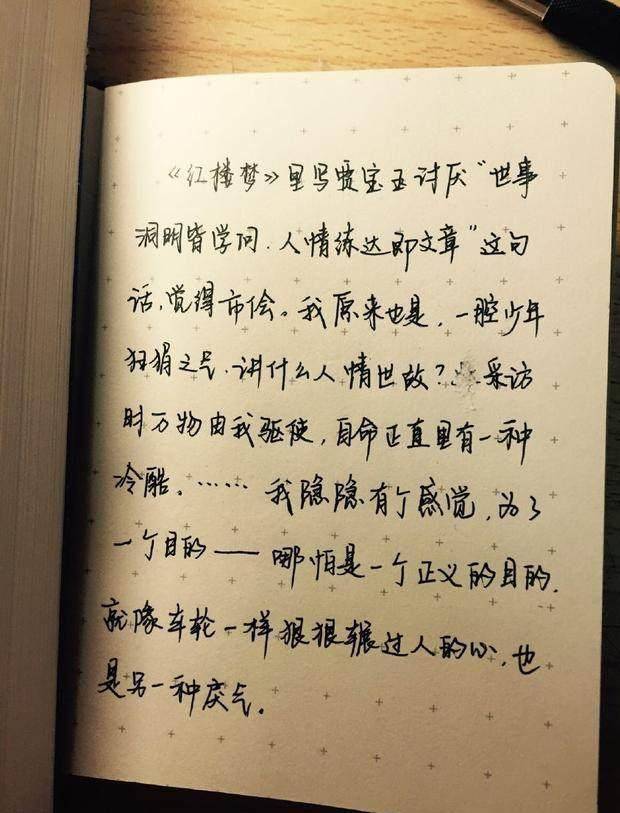 《红楼梦》里写贾宝玉讨厌“世事
洞明皆学问.人情练达即文章”这句
话,觉得市侩。我原来也是,一腔少年
狂狷之气,讲什么人情世故?采访
时万物由我驱使,自命正直里有一种
冷酷。……我隐隐有个感觉,为了
一个目的——哪怕是一个正义的目的,
就像车轮一样狠狠辗过人的心,也
是另一种戾气.